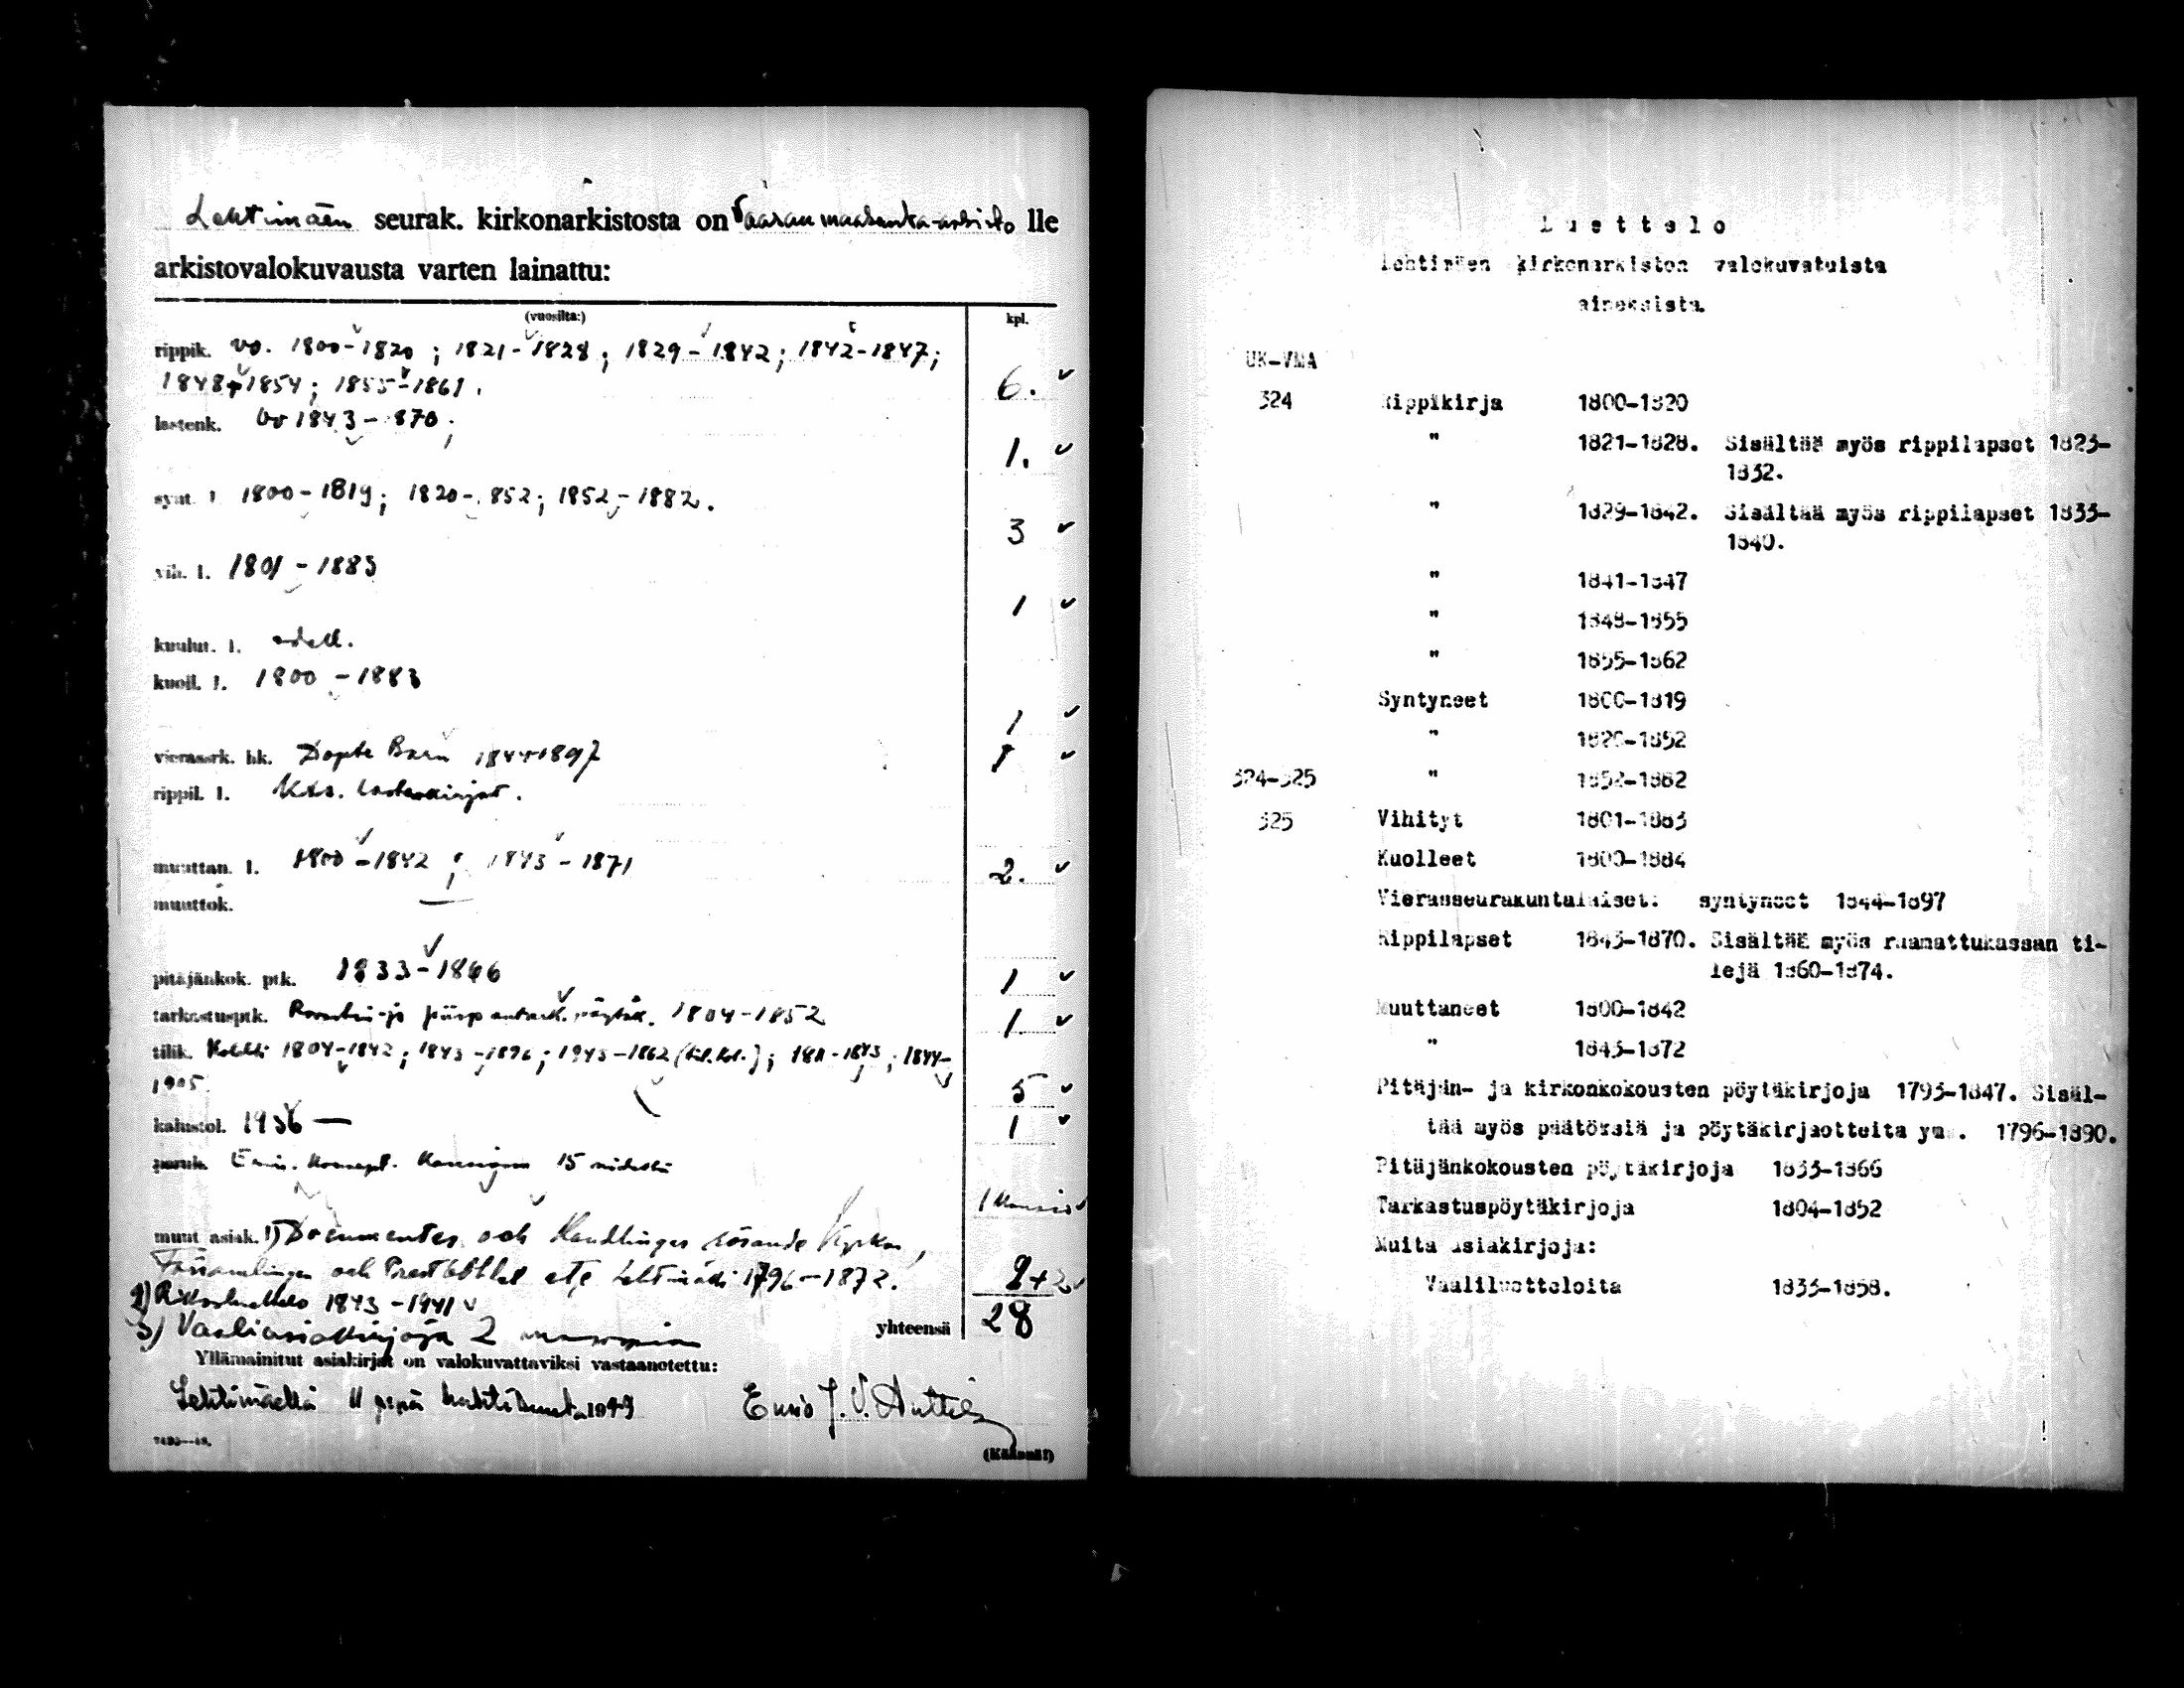 Lehtimäen seurak. kirkonarkistosta on Vaasan maakunta-arkisto lle
arkistovalokuvausta varten lainattu:
(vuosilta:) kpl.
rippik. vo. 1800-1820; 1821-1828; 1829-1842; 1842-1847;
1848-1854; 1855-1861. 6.
lastenk. vo 1843-870; 1.
synt. l. 1800-1819; 1820-852; 1852-1882. 3
vih. l. 1801-1883 1
kuulut. l. edell.
kuoll. l. 1800-1883 1
vierassrk. hk. Döpte Barn 1844-1897 1
rippil. l. Kts. lastenkirjat.
muuttan. l. 1800-1842; 1843-1871 2.
muuttok. —
pitäjänkok. ptk. 1833-1866 1
tarkastusptk. Rovastin- ja piisp. pöytäk. 1804-1852 1.
tilik. 1804-1842; 1843-1896; 1943-1862; 1811-1843; 1844-
1905 5
kalustol. 1936 — 1
15
muut asiak. 1) Documenter och Handlingar rörande Kyrkan,
Församlingen och Prestbolet etc Lehtimäki 1796-1872. 2+2
2) Rikosluettelo 1843-1941
3) Vaaliasiakirjoja 2 yhteensä 28
Yllämainitut asiakirjat on valokuvattaviksi vastaanotettu:
Lehtimäellä 11 p:nä huhtikuuta 1949
(Käännä!)
Luettelo
Lehtimäen kirkonarkiston valokuvatuista
aineksista.
UK-VMA
324 Rippikirja 1800-1820
" 1821-1828. Sisältää myös rippilapset 1823-
1832.
" 1829-1842. Sisältää myös rippilapset 1833-
1840.
" 1841-1847
" 1848-1855
" 1855-1862
Syntyneet 1800-1819
" 1820-1852
324-325 " 1852-1882
325 Vihityt 1801-1883
Kuolleet 1800-1884
Vierasseurakuntalaiset: syntyneet 1844-1897
Rippilapset 1843-1870. Sisältää myös raamattukassan ti-
lejä 1860-1874.
Muuttaneet 1800-1842
" 1843-1872
Pitäjän- ja kirkonkokousten pöytäkirjoja 1793-1847. Sisäl-
tää myös päätöksiä ja pöytäkirjaotteita ym. 1796-1890.
Pitäjänkokousten pöytäkirjoja 1833-1866
Tarkastuspöytäkirjoja 1804-1852
Muita asiakirjoja:
Vaaliluetteloita 1833-1858.